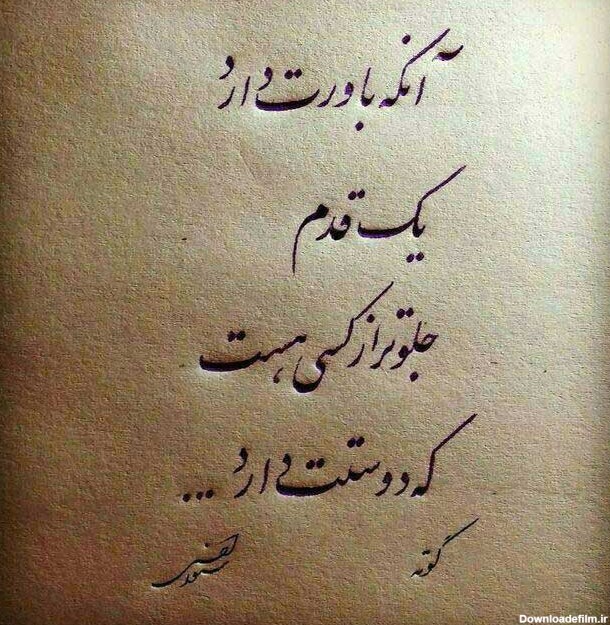 آنکه باورت دارد
یک قدم
جلوتر از کسی هست
که دوستت دارد ...
گوته
Downloadefilm.ir